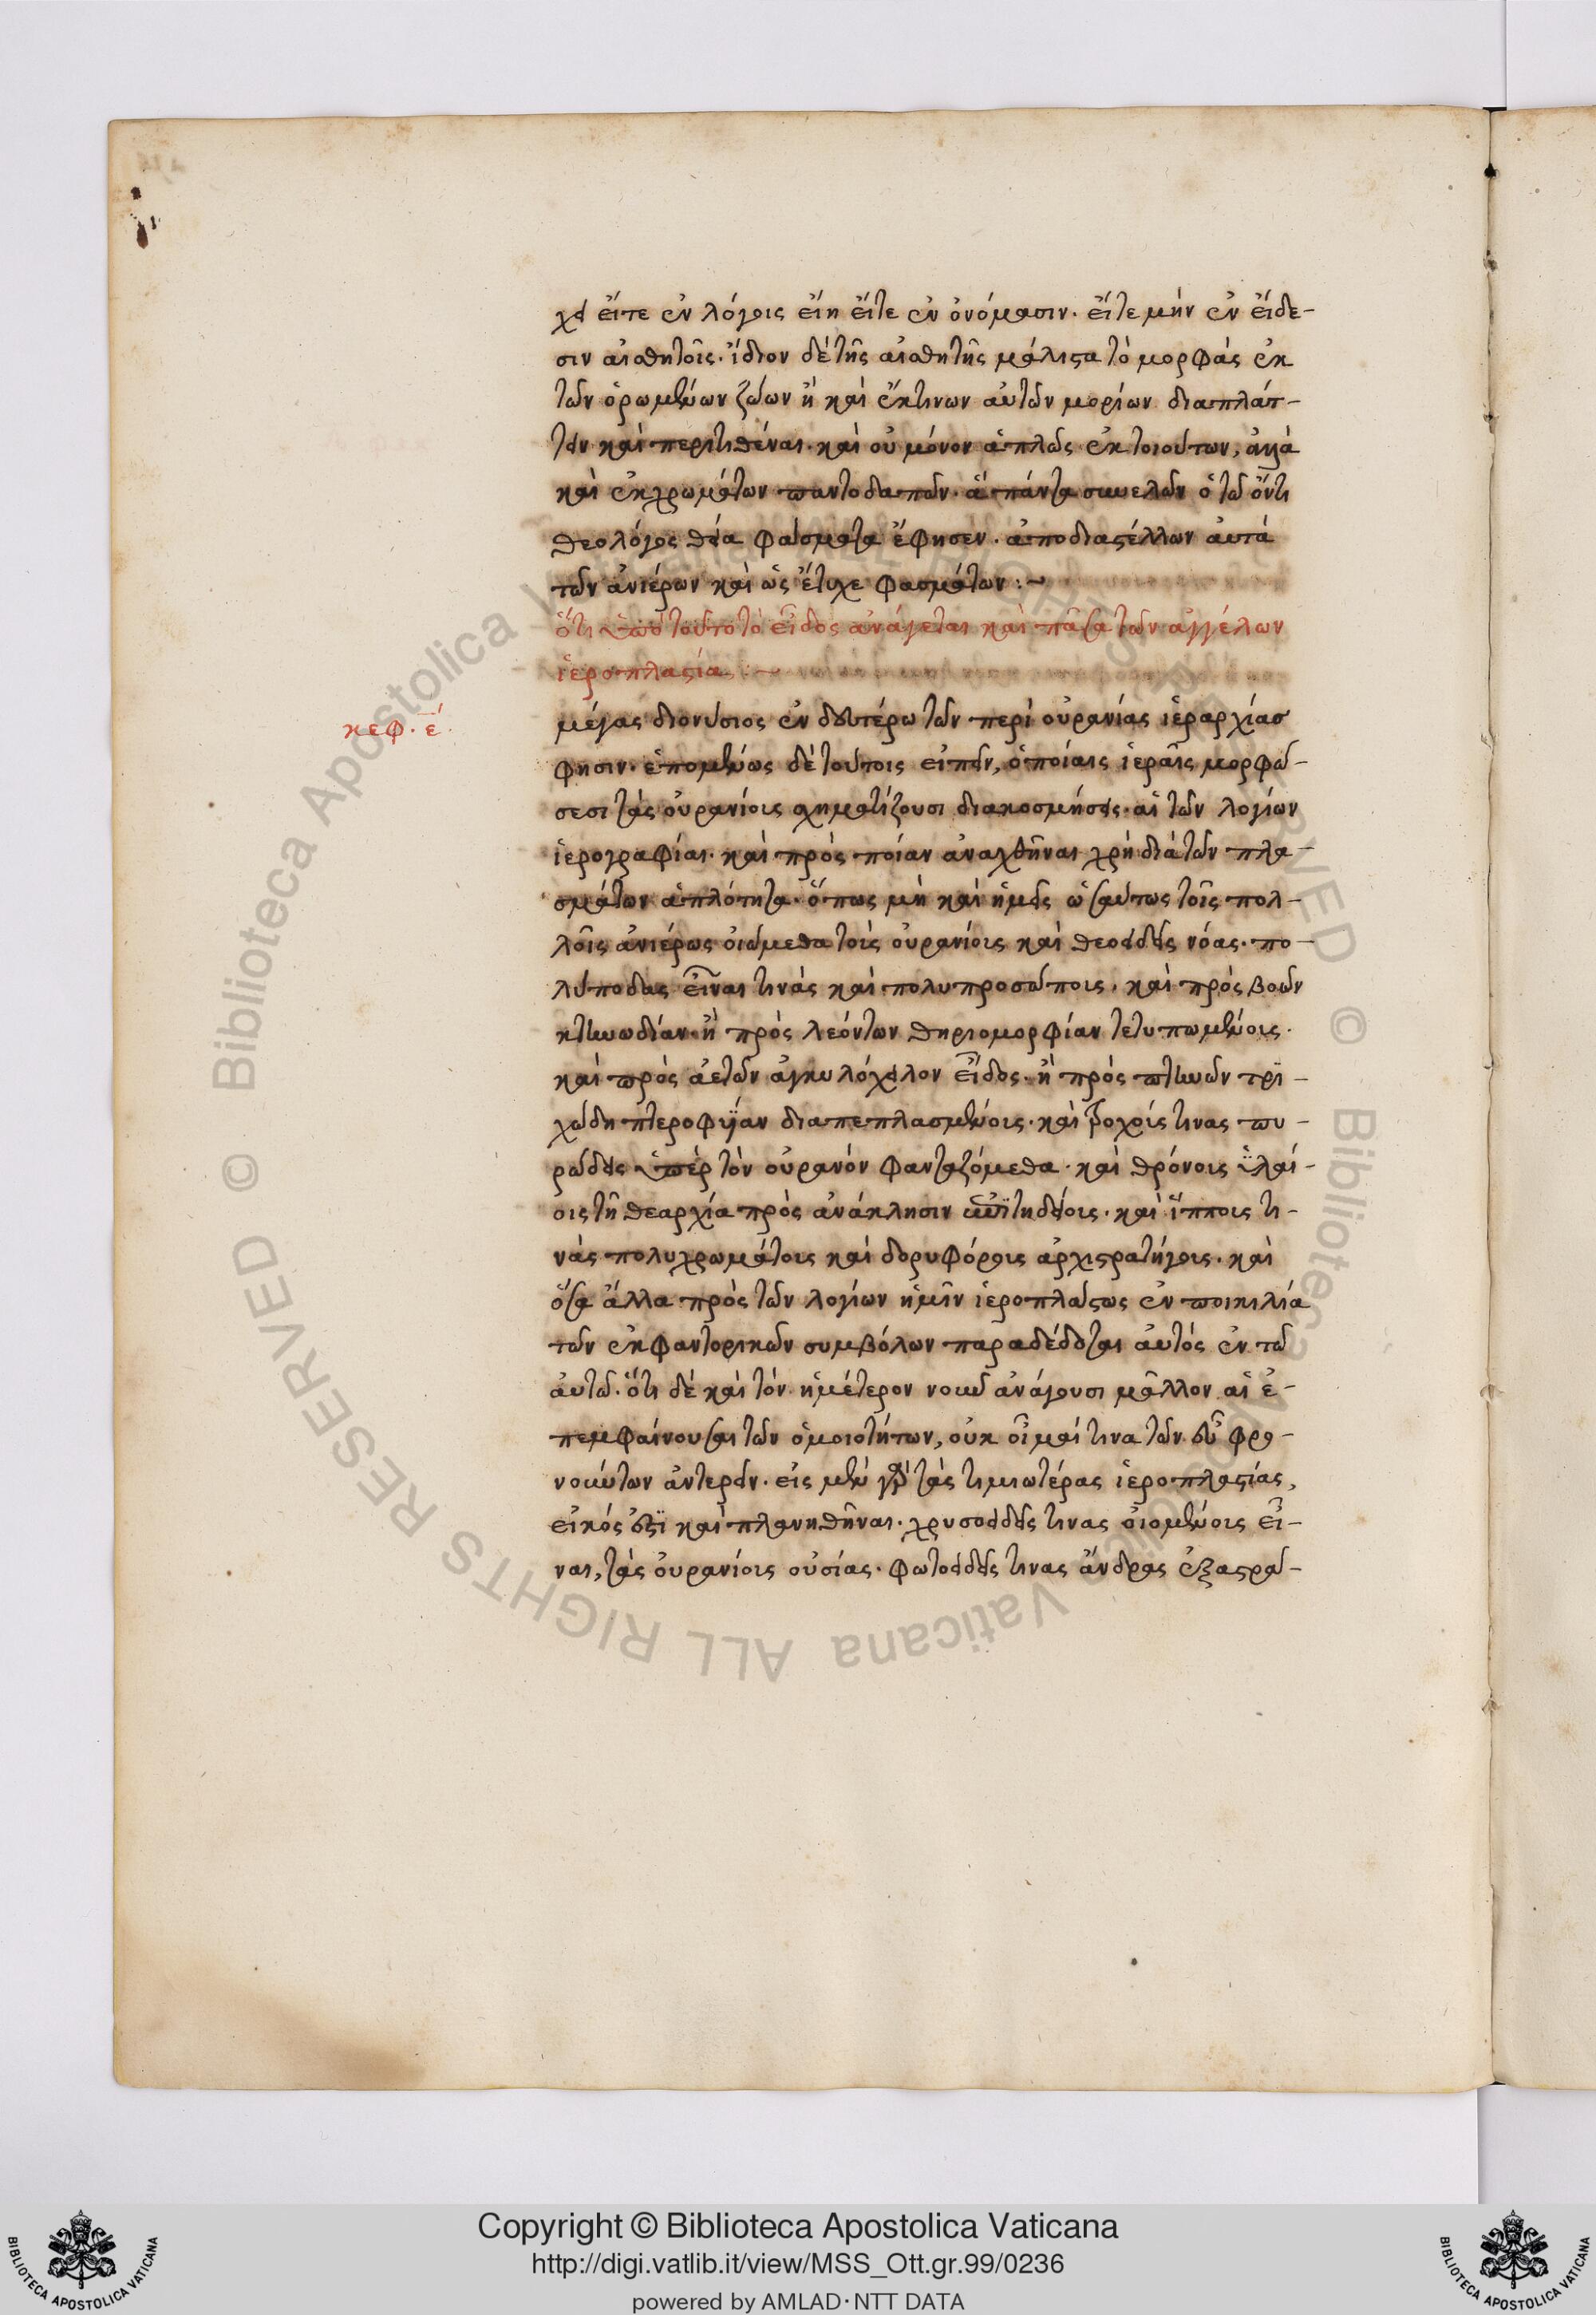 χει εἴτε ἐν λόγοις εἴη εἴτε ἐν ὀνόμασιν· εἴτε μὴν ἐν εἴδε-
σιν αἰσθητοῖς· ἴδιον δὲ τῆς αἰσθητῆς μάλιστα τὸ μορφὰς ἐκ
τῶν ὁρωμένων ζώων ἢ καὶ ἔκ τινων αὐτῶν μορίων διαπλάτ-
τειν καὶ περιτιθέναι· καὶ οὐ μόνον ἁπλῶς ἐκ τοιούτων, ἀλλὰ
καὶ ἐκ χρωμάτων παντοδαπῶν· ἃ πάντα συνελὼν ὁ τῶ ὄντι
θεολόγος θεῖα φάσματα ἔφησεν· ἀποδιαστέλλων αὐτὰ
τῶν ἀνιέρων καὶ ὡς ἔτυχε φασμάτων :~
ὅτι ὑπὸ τοῦτο τὸ εἶδος ἀνάγεται καὶ πᾶσα τῶν ἀγγέλων
ἱεροπλαστία :~
κεφ. έ.
μέγας διονύσιος ἐν δευτέρω τῶν περὶ οὐρανίας ἱεραρχίας
φησιν· ἑπομένως δὲ τούτοις εἰπεῖν, ὁποίαις ἱεραῖς μορφώ-
σεσι τὰς οὐρανίους σχηματίζουσι διακοσμήσεις· αἱ τῶν λογίων
ἱερογραφίαι· καὶ πρὸς ποίαν ἀναχθῆναι χρὴ διὰ τῶν πλα-
σμάτων ἁπλότητα· ὅπως μὴ καὶ ἡμεῖς ὡσαύτως τοῖς πολ-
λοῖς ἀνιέρως οἰώμεθα τοὺς οὐρανίους καὶ θεοειδεῖς νόας· πο-
λύποδας εἶναι τινὰς καὶ πολυπροσώπους· καὶ πρὸς βοῶν
κτηνωδίαν· ἢ πρὸς λεόντων θηριομορφίαν τετυπωμένους·
καὶ πρὸς ἀετῶν ἀγκυλόχειλον εἶδος· ἢ πρὸς πτηνῶν τρι-
χώδη πτεροφυΐαν διαπεπλασμένους· καὶ τροχούς τινας πυ-
ρώδεις ὑπὲρ τὸν οὐρανὸν φανταζόμεθα· καὶ θρόνους ὑλαί-
ους τῆ θεαρχία πρὸς ἀνάκλησιν ἐπιτηδείους· καὶ ἵππους τι-
νὰς πολυχρωμάτους καὶ δορυφόρους ἀρχιστρατήγους· καὶ
ὅσα ἄλλα πρὸς τῶν λογίων ἡμῖν ἱεροπλάστως ἐν ποικιλία
τῶν ἐκφαντορικῶν συμβόλων παραδέδοται αὐτὸς ἐν τῶ
αὐτῶ· ὅτι δὲ καὶ τὸν ἡμέτερον νοῦν ἀνάγουσι μᾶλλον αἱ ἀ-
πεμφαίνουσαι τῶν ὁμοιοτήτων, οὐκ οἶμαί τινα τῶν εὖ φρο-
νούντων ἀντερεῖν· εἰς μὲν γὰρ τὰς τιμιωτέρας ἱεροπλαστίας,
εἰκός ἐστι καὶ πλανηθῆναι· χρυσοειδεῖς τινας οἰομένους εἶ-
ναι, τὰς οὐρανίους οὐσίας· φωτοειδεῖς τινας ἄνδρας ἐξαστρά-
Copyright © Biblioteca Apostolica Vaticana
http://digi.vatlib.it/view/MSS_Ott.gr.99/0236
powered by AMLAD·NTT DATA
© Biblioteca Apostolica Vaticana ALL RIGHTS RESERVED
BIBLIOTECA APOSTOLICA VATICANA
BIBLIOTECA APOSTOLICA VATICANA